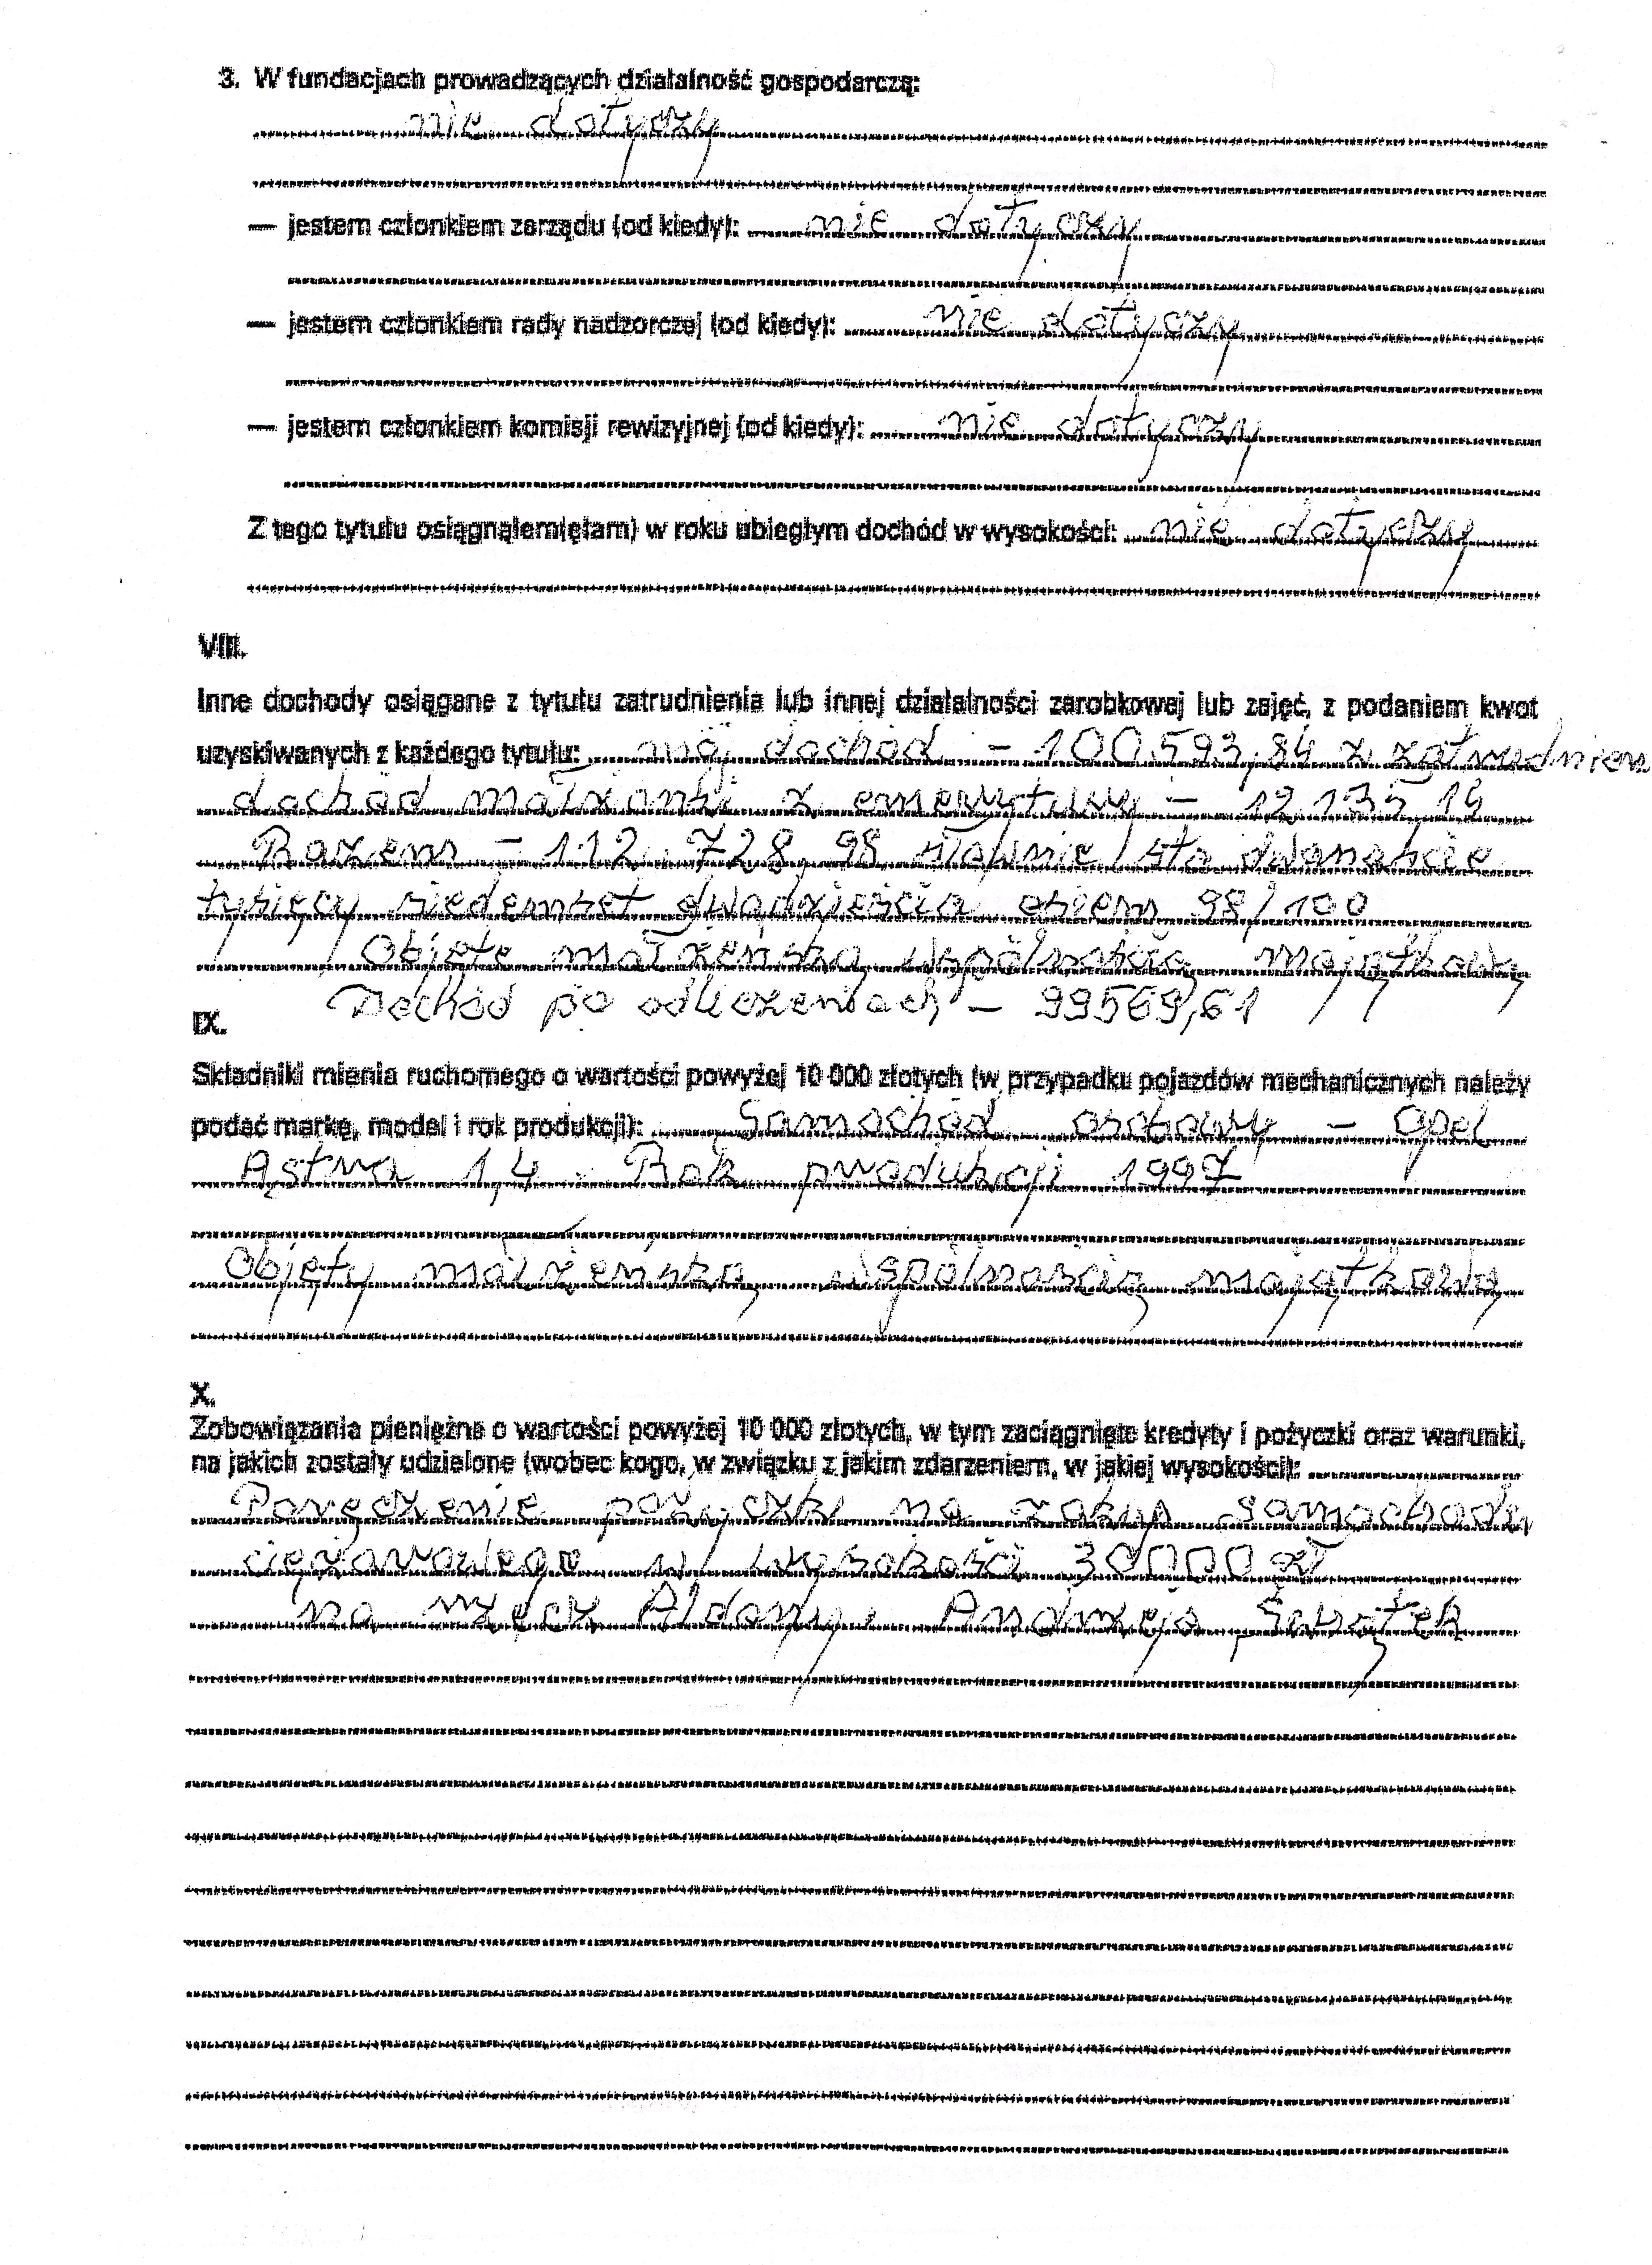 3. W fundacjach prowadzących działalność gospodarczą:
nie dotyczy
— jestem członkiem zarządu (od kiedy): nie dotyczy
— jestem członkiem rady nadzorczej (od kiedy): nie dotyczy
— jestem członkiem komisji rewizyjnej (od kiedy): nie dotyczy
Z tego tytułu osiągnąłem(ęłam) w roku ubiegłym dochód w wysokości: nie dotyczy
VIII.
Inne dochody osiągane z tytułu zatrudnienia lub innej działalności zarobkowej lub zajęć, z podaniem kwot
uzyskiwanych z każdego tytułu: mój dochód - 100.593,84 z zatrudnienia
dochód małżonki z emerytury - 12.135,14
Razem - 112.728,98 słownie /sto dwanaście
tysięcy siedemset dwadzieścia osiem 98/100
Objęte małżeńską wspólnością majątkową
Dochód po odliczeniach - 99569,61
IX.
Składniki mienia ruchomego o wartości powyżej 10 000 złotych (w przypadku pojazdów mechanicznych należy
podać markę, model i rok produkcji): Samochód osobowy - Opel
Astra 1,4 Rok produkcji 1997
Objęty małżeńską wspólnością majątkową
X.
Zobowiązania pieniężne o wartości powyżej 10 000 złotych, w tym zaciągnięte kredyty i pożyczki oraz warunki,
na jakich zostały udzielone (wobec kogo, w związku z jakim zdarzeniem, w jakiej wysokości):
Poręczenie pożyczki na zakup samochodu
ciężarowego w wysokości 30000 zł
na rzecz Aldony i Andrzeja Świątek